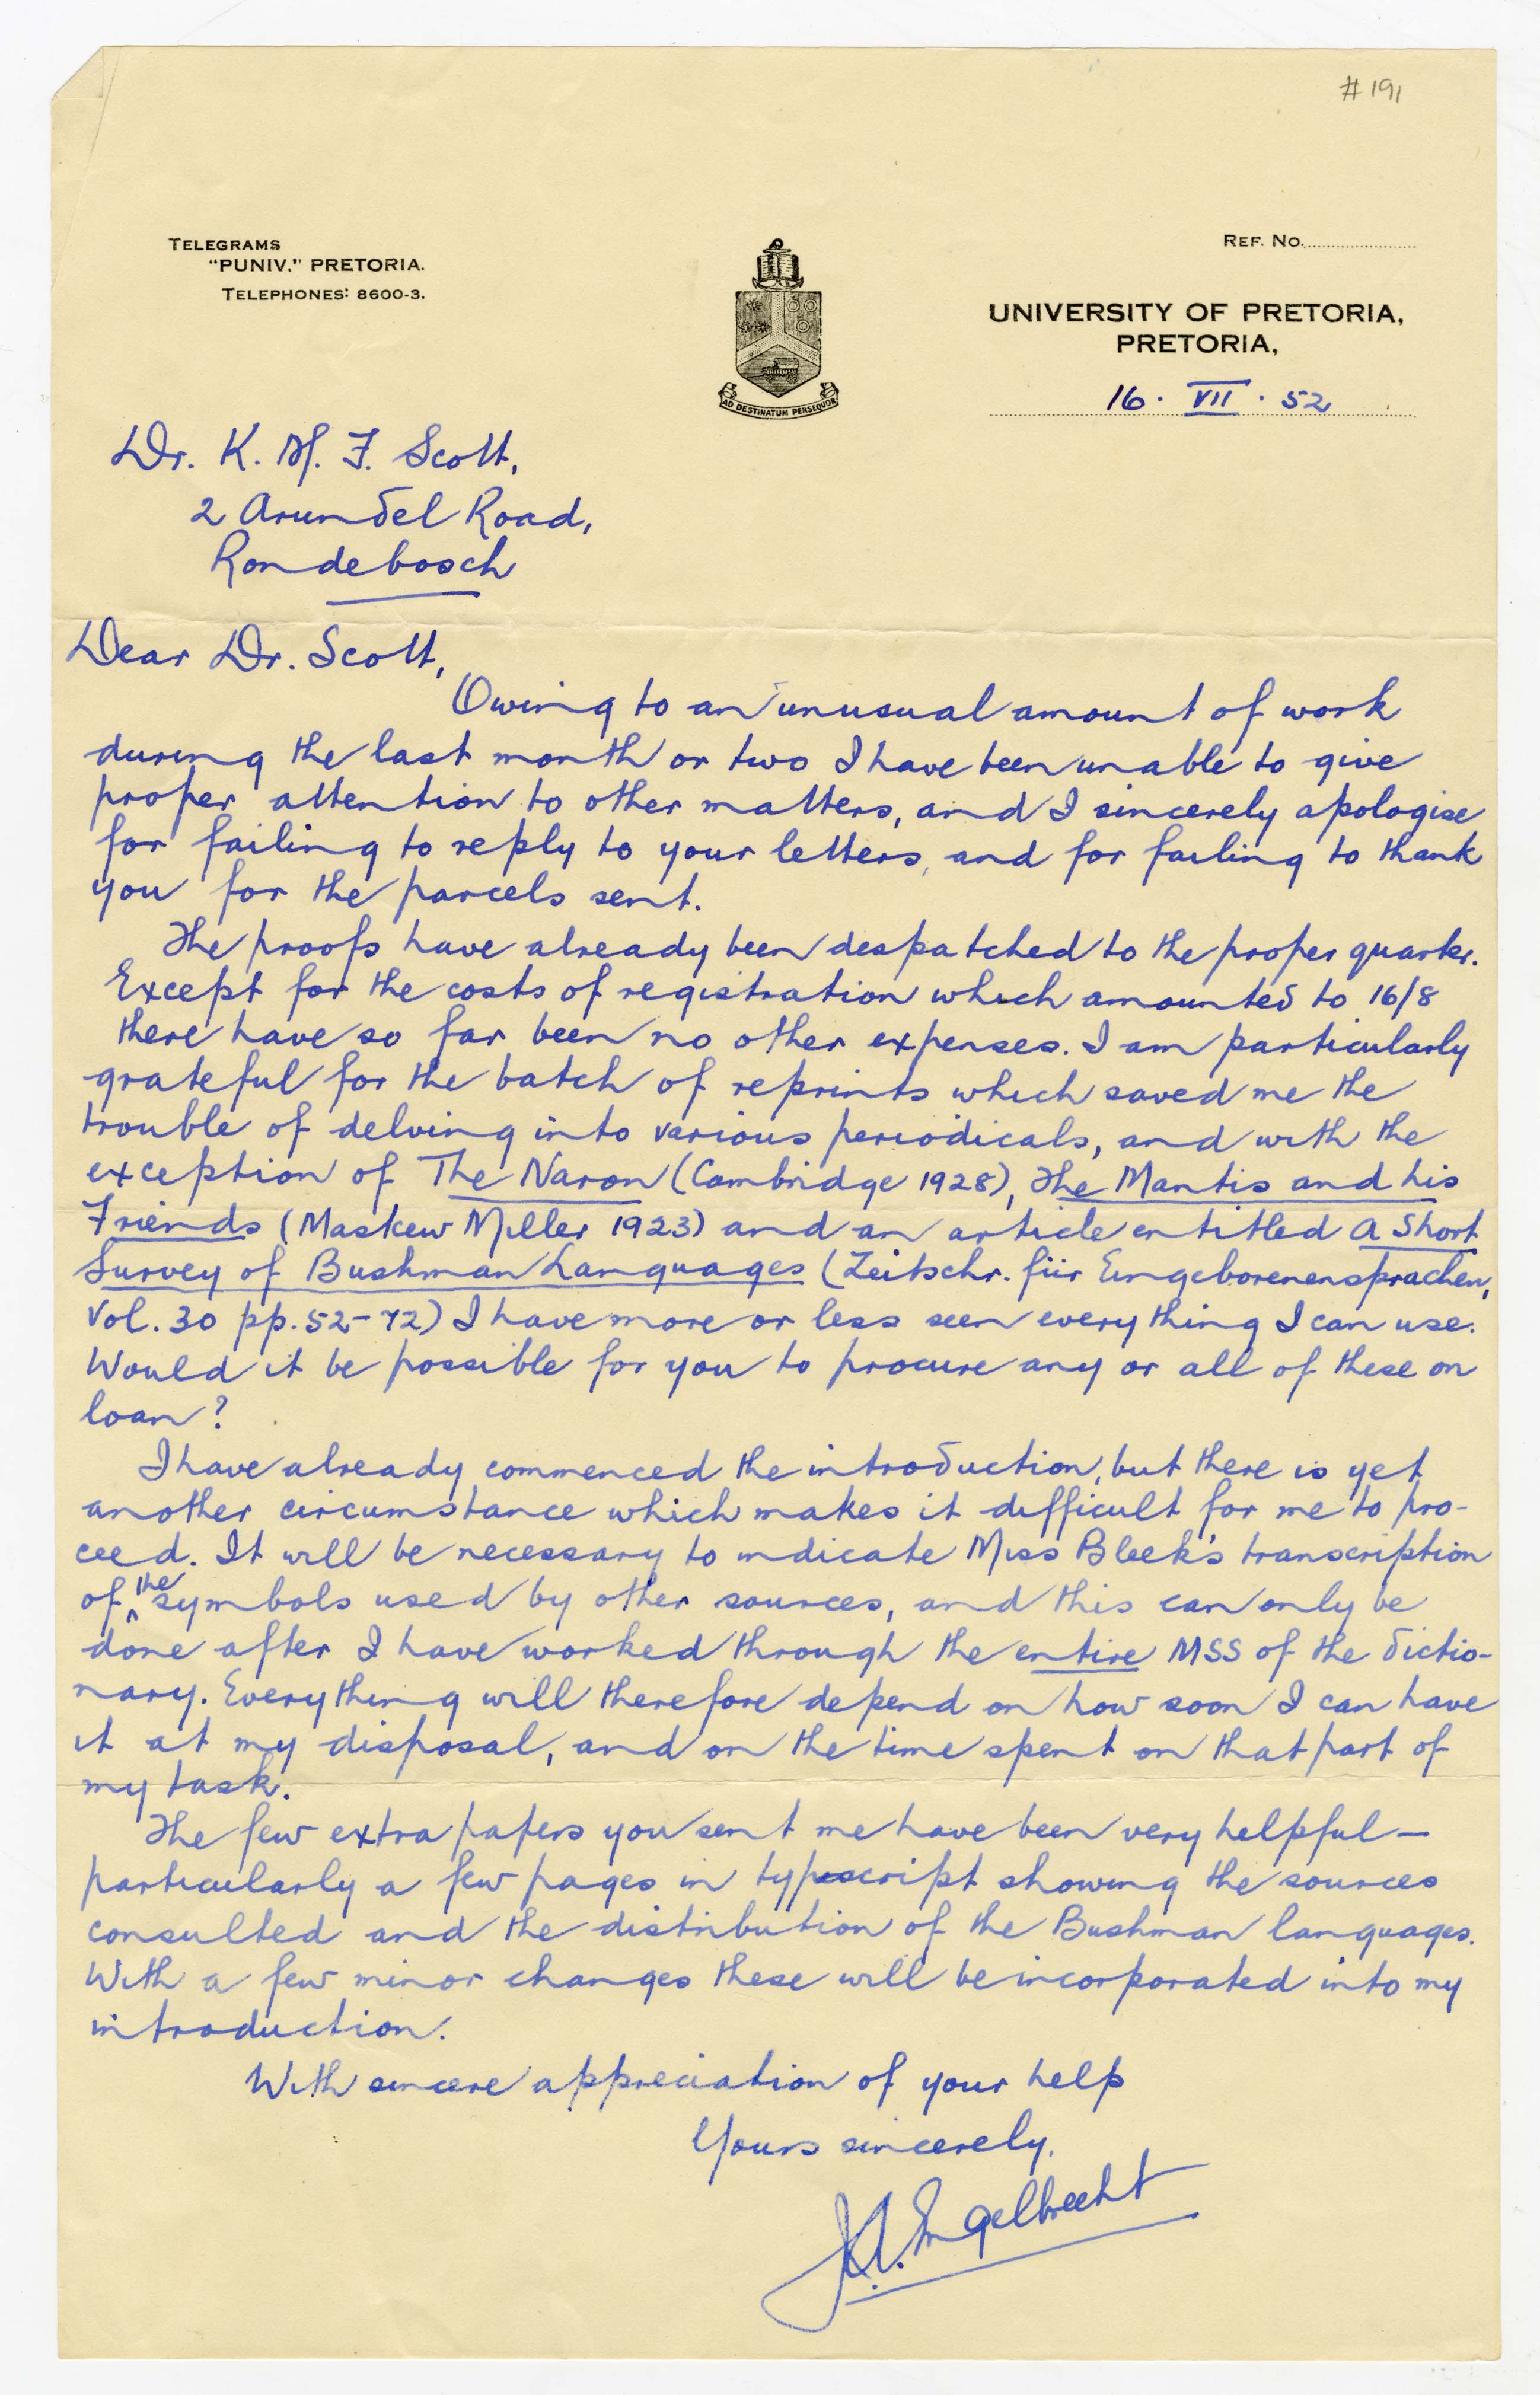 #191
TELEGRAMS
"PUNIV." PRETORIA.
TELEPHONES: 8600-3.
REF. NO.
UNIVERSITY OF PRETORIA,
PRETORIA,
AD DESTINATUM PERSEQUOR
16. VII. 52
Dr. K. M. F. Scott,
2 Arundel Road,
Rondebosch
Dear Dr. Scott,
Owing to an unusual amount of work
during the last month or two I have been unable to give
proper attention to other matters, and I sincerely apologise
for failing to reply to your letters, and for failing to thank
you for the parcels sent.
The proofs have already been despatched to the proper quarter.
Except for the costs of registration which amounted to 16/8
there have so far been no other expenses. I am particularly
grateful for the batch of reprints which saved me the
trouble of delving into various periodicals, and with the
exception of The Naron (Cambridge 1928), The Mantis and his
Friends (Maskew Miller 1923) and an article entitled A Short
Survey of Bushman Languages (Zeitschr. für Eingeborenensprachen,
Vol. 30 pp. 52-72) I have more or less seen everything I can use.
Would it be possible for you to procure any or all of these on
loan?
I have already commenced the introduction, but there is yet
another circumstance which makes it difficult for me to pro-
ceed. It will be necessary to indicate Miss Bleek's transcription
of the symbols used by other sources, and this can only be
done after I have worked through the entire MSS of the dictio-
nary. Everything will therefore depend on how soon I can have
it at my disposal, and on the time spent on that part of
my task.
The few extra papers you sent me have been very helpful—
particularly a few pages in typescript showing the sources
consulted and the distribution of the Bushman languages.
With a few minor changes these will be incorporated into my
introduction.
With sincere appreciation of your help
Yours sincerely,
J.A. Engelbrecht